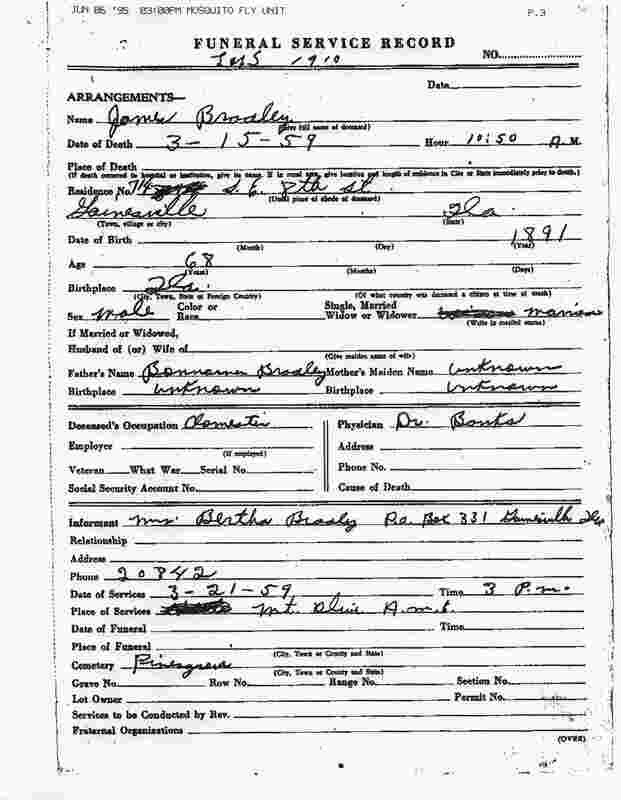 JUN 06 '95 03:00PM MOSQUITO FLY UNIT P.3
FUNERAL SERVICE RECORD
1910 NO.
Date
ARRANGEMENTS—
Name James Bradley
(Give full name of deceased)
Date of Death 3-15-59 Hour 10:50 A.M.
Place of Death
(If death occurred in hospital or institution, give its name. If in rural area, give location and length of residence in City or State immediately prior to death.)
Residence No. 714 S.E. 8th St.
(Usual place of abode of deceased)
Gainesville Fla
(Town, village or city) (State)
Date of Birth 1891
(Month) (Day) (Year)
Age 68
(Years) (Months) (Days)
Birthplace Fla.
(City, Town, State or Foreign Country) (Of what country was deceased a citizen at time of death)
Sex Male Color or Race Single, Married Widow or Widower Married
(Write in marital status)
If Married or Widowed,
Husband of (or) Wife of
(Give maiden name of wife)
Father's Name Bradley Mother's Maiden Name Unknown
Birthplace Unknown Birthplace Unknown
Deceased's Occupation Domestic Physician Dr. Banks
Employer Address
(If employed)
Veteran What War Serial No. Phone No.
Social Security Account No. Cause of Death
Informant Mrs. Bertha Bradley P.O. Box 331 Gainesville Fla
Relationship
Address
Phone 20842
Date of Services 3-21-59 Time 3 P.m.
Place of Services Mt. Olive A.M.E.
Date of Funeral Time
Place of Funeral
(City, Town or County and State)
Cemetery Pinesgrove
(City, Town or County and State)
Grave No. Row No. Range No. Section No.
Lot Owner Permit No.
Services to be Conducted by Rev.
Fraternal Organizations
(OVER)